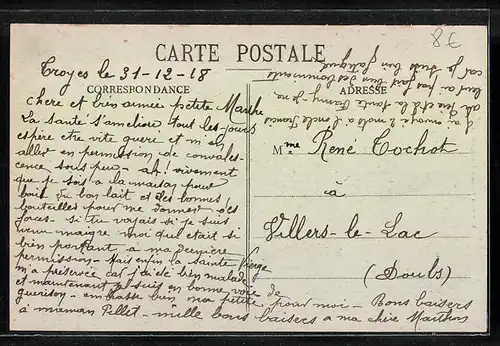 8€
CARTE POSTALE
Troyes le 31-12-18
CORRESPONDANCE
ADRESSE
chere et bien aimée petite Marthe
La santé s'ameliore tout les jours
espère etre vite gueri et m'en
aller en permission de convales-
cence sous peu - ah! vivement
que je sois a la maison pour
boir du bon lait et des bonnes
bouteilles pour me donner des
forces - si tu voyais si je suis
venu maigre moi qui etait si
bien portant a ma dernière
permission - fais enfin la Sainte Vierge
m'a préservée car j'ai été bien malade
et maintenant je suis en bonne voie de
guerison - embrasse bien ma petite
à maman Pillet - mille bons baisers a ma chère Marthon
pour moi - Bons baisers
j'ai envoyé 2 mots a l'oncle Francis
car je suis bien fatigué
Mme René Cochot
à
Villers-le-Lac
(Doubs)